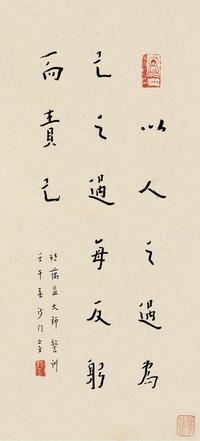 以人之過為
己之過每反躬
而責己
蕅益大師警訓
壬午春沙門